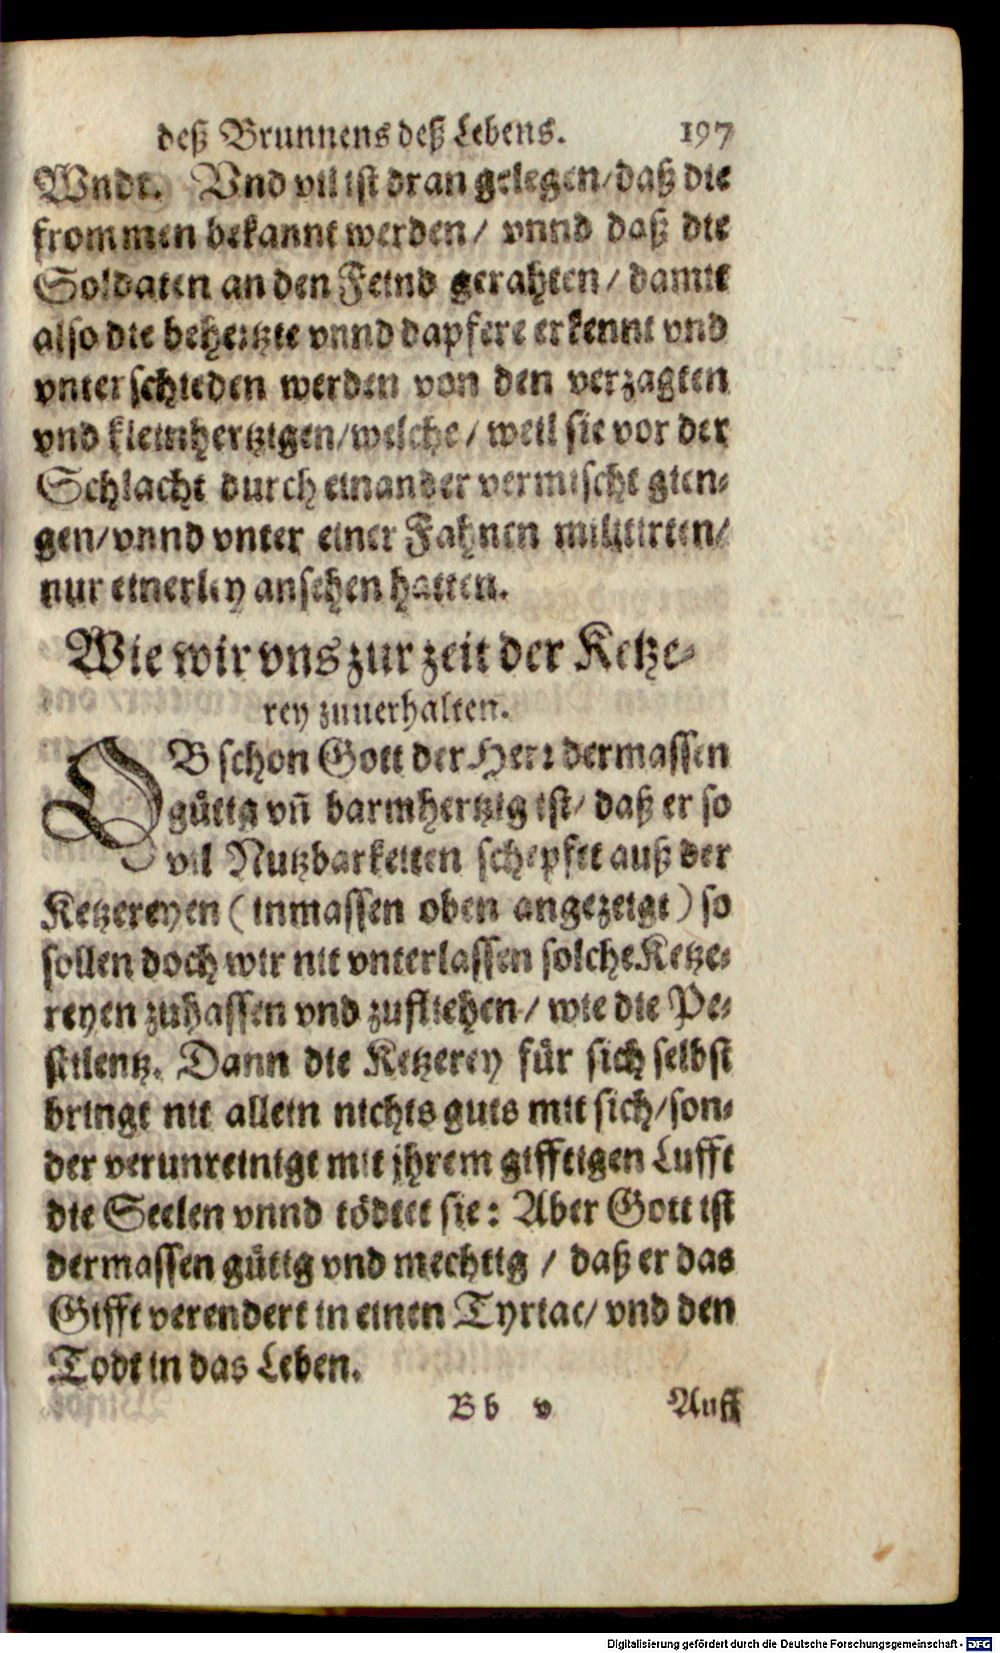 deß Brunnens deß Lebens. 197
Wndt. Vnd vil ist dran gelegen/ daß die
frommen bekannt werden/ vnnd daß die
Soldaten an den Feind gerahten/ damit
also die behertzte vnnd dapfere erkennt vnd
vnterschieden werden von den verzagten
vnd kleinhertzigen/ welche/ weil sie vor der
Schlacht durch einander vermischt gien-
gen/ vnnd vnter einer Fahnen militirten/
nur einerley ansehen hatten.
Wie wir vns zur zeit der Ketze-
rey zuuerhalten.
OB schon Gott der Herr dermassen
gütig vñ barmhertzig ist/ daß er so
vil Nutzbarkeiten schepfet auß der
Ketzereyen (inmassen oben angezeigt) so
sollen doch wir nit vnterlassen solche Ketze-
reyen zuhassen vnd zufliehen/ wie die Pe-
stilentz. Dann die Ketzerey für sich selbst
bringt nit allein nichts guts mit sich/ son-
der verunreinigt mit jhrem gifftigen Lufft
die Seelen vnnd tödtet sie: Aber Gott ist
dermassen gütig vnd mechtig / daß er das
Gifft verendert in einen Tyriac/ vnd den
Todt in das Leben.
Bb v Auff
Digitalisierung gefördert durch die Deutsche Forschungsgemeinschaft - DFG